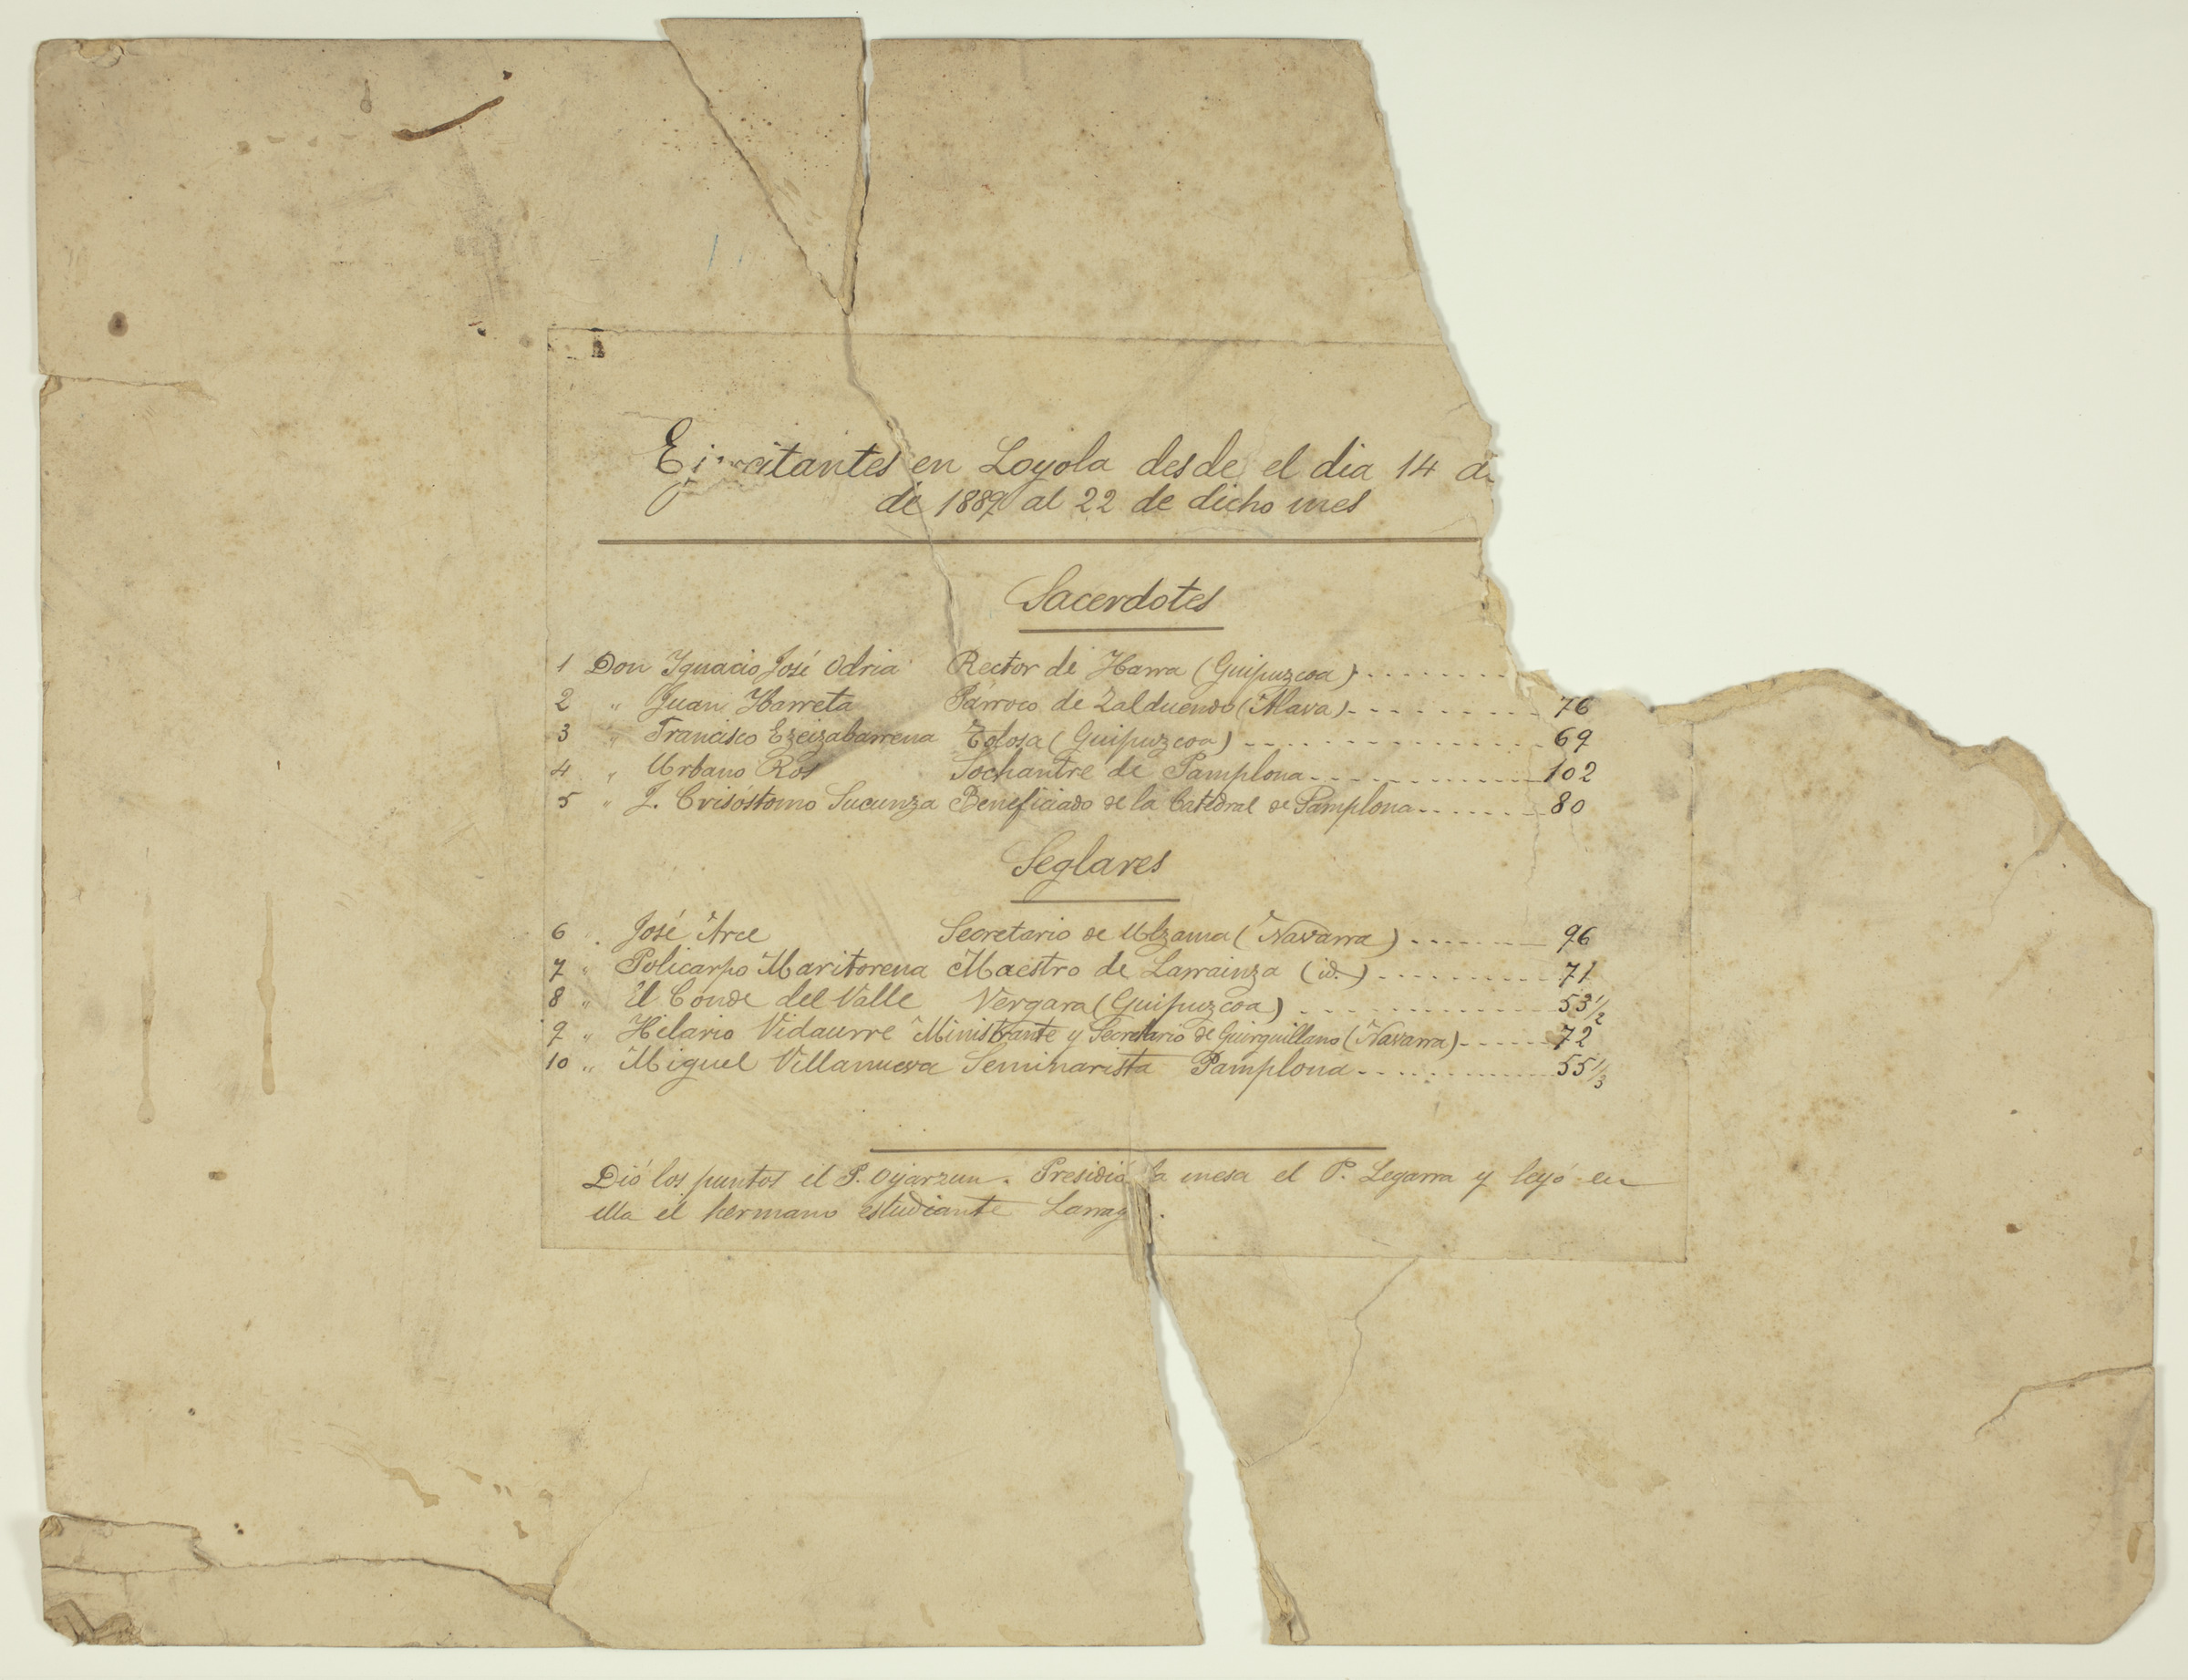 Ejercitantes en Loyola desde el dia 14 de
de 1889 al 22 de dicho mes
Sacerdotes
1 Don Ignacio José Odria Rector de Ibarra (Guipuzcoa) --------
2 " Juan Ibarreta Párroco de Zalduendo (Alava) --------- 76
3 " Francisco Ezeizabarrena Tolosa (Guipuzcoa) ------------- 69
4 " Urbano Ros Sochantre de Pamplona ------------ 102
5 " J. Crisóstomo Sucunza Beneficiado de la Catedral de Pamplona ------- 80
Seglares
6 " José Arce Secretario de Ulzama (Navarra) ------- 96
7 " Policarpo Maritorena Maestro de Larrainza (id.) ---------- 71
8 " El Conde del Valle Vergara (Guipuzcoa) ------------- 53 1/2
9 " Hilario Vidaurre Ministrante y Secretario de Guirguillano (Navarra) ----- 72
10 " Miguel Villanueva Seminarista Pamplona ------------ 55 1/3
Dió los puntos el P. Oyarzun. Presidió la mesa el P. Legarra y leyó en
ella el hermano estudiante